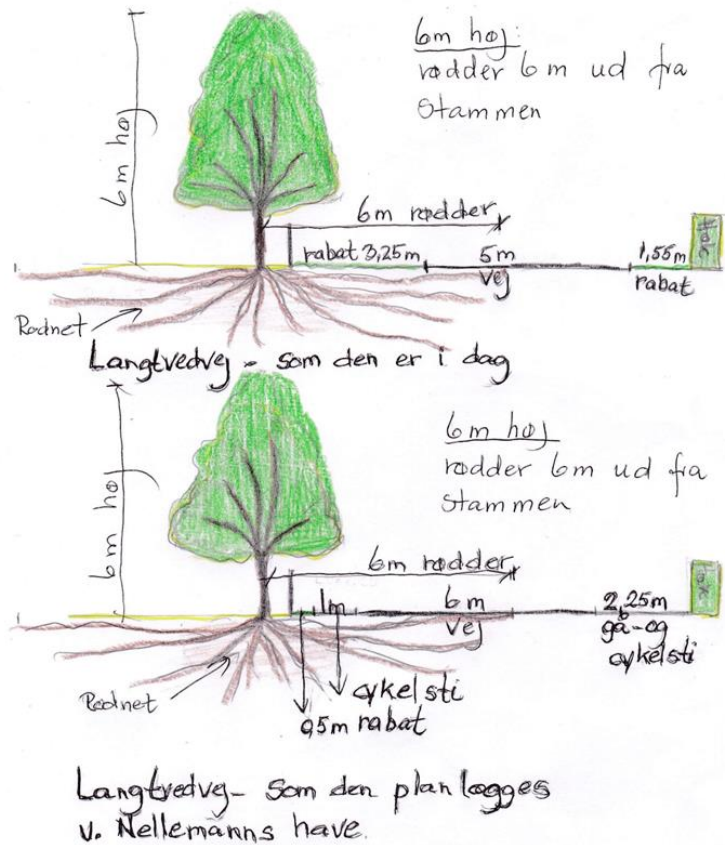 6m høj:
rødder 6m ud fra
stammen
6m høj
6m rødder
rabat 3,25m
5m
vej
1,55m
rabat
Rodnet
Langtvedvej - som den er i dag
6m høj
rødder 6m ud fra
stammen
6m høj
6m rødder
1m
6m
vej
2,25m
gå-og
cykelsti
Rodnet
cykelsti
0,5m rabat
Langtvedvej - som den planlægges
v. Nellemanns have.